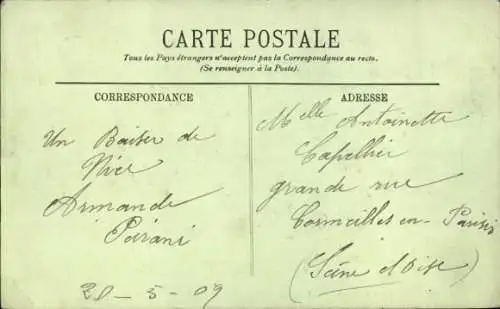 CARTE POSTALE
Tous les Pays étrangers n'acceptent pas la Correspondance au recto.
(Se renseigner à la Poste).
CORRESPONDANCE
Un Baiser de
Nice
Armande
Peirani
20-5-09
ADRESSE
Melle Antoinette
Capellier
grande rue
Cormeilles en-Parisis
(Seine et Oise)